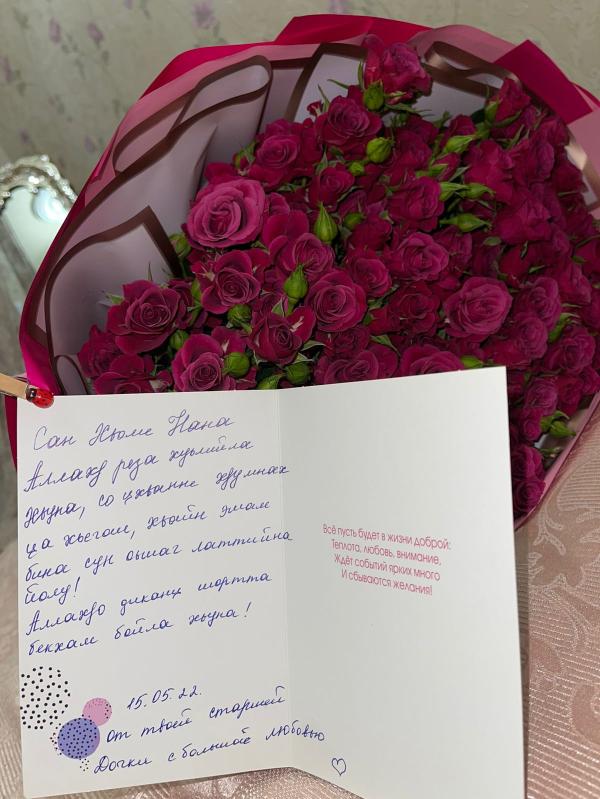 Сан Хьоме Нана
Аллахд реза хуьлийла
хьуна, со цхьанне хIумнах
ца хьегош, хьайн эшам
бина сун оьшаг латтийна
йолу!
Аллахдо диканца шортта
бекхам бойла хьуна!
15.05.22.
от твоей старшей
Дочки с большой любовью
Всё пусть будет в жизни доброй:
Теплота, любовь, внимание,
Ждёт событий ярких много
И сбываются желания!